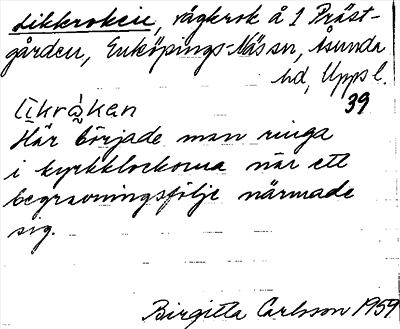 Likkroken, vägkrok å 1 Präst-
gården, Enköpings-Näs sn, Åsunda
hd, Upps l.
39
līkrå̀kan
Här började man ringa
i kyrkklockorna när ett
begravningsfölje närmade
sig.
Birgitta Carlsson 1959